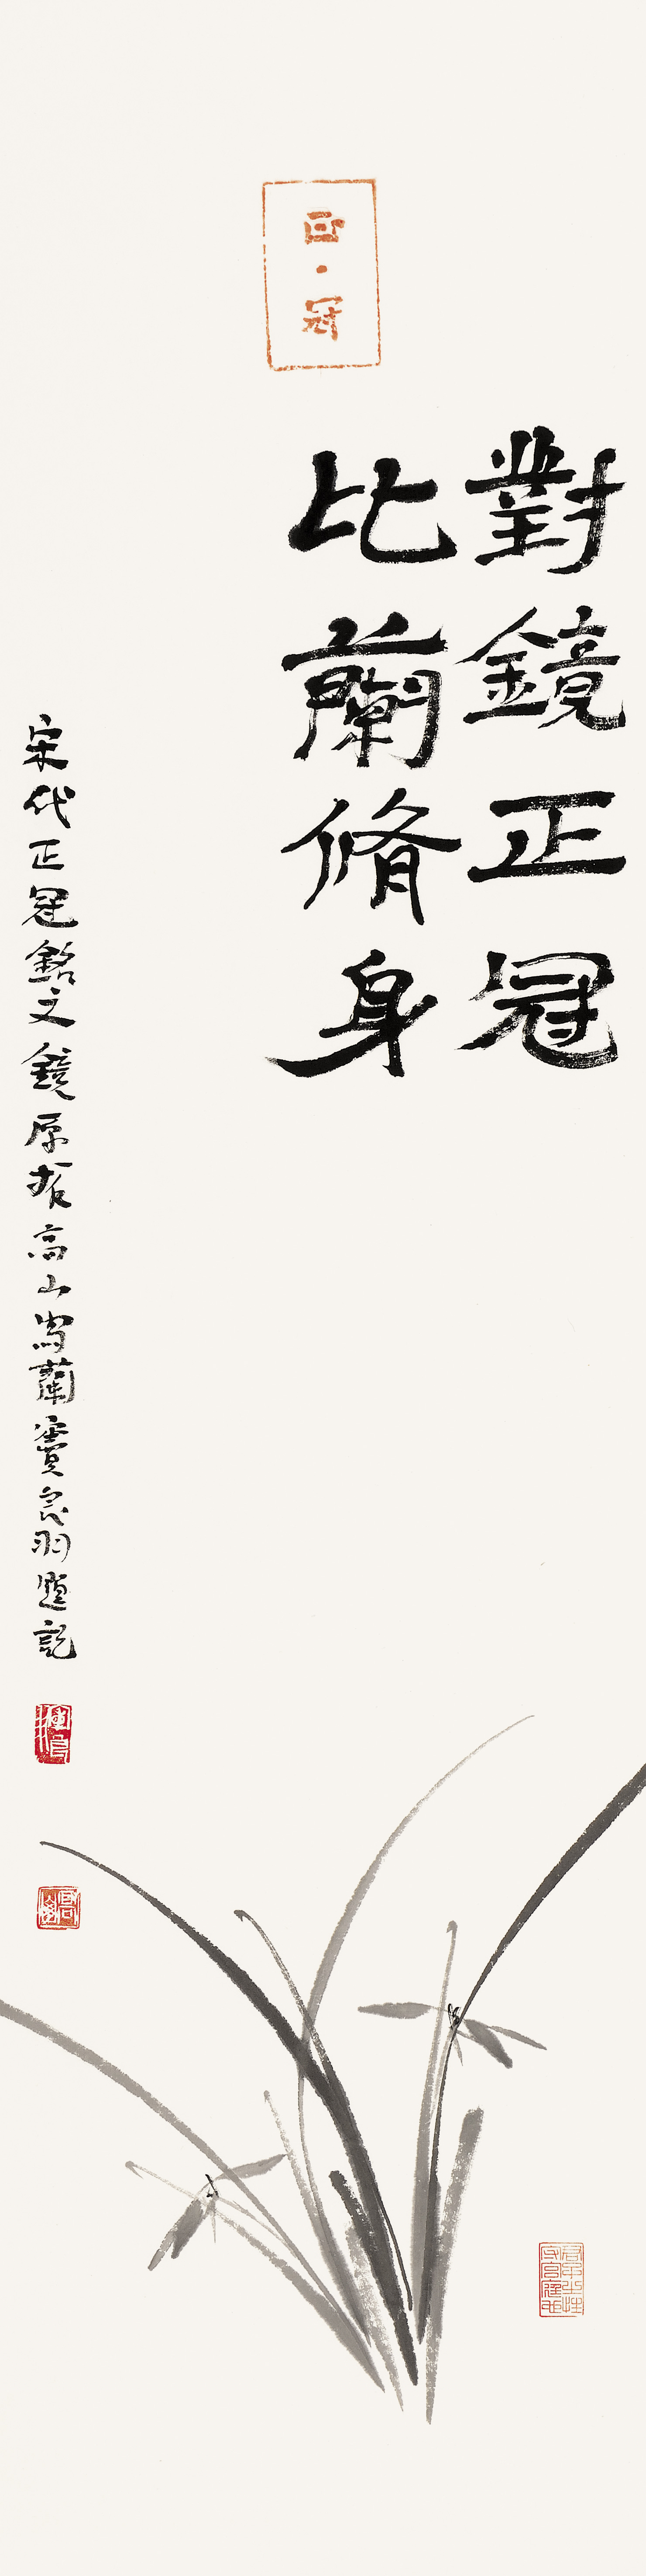 正·冠
對鏡正冠
比蘭脩身
宋代正冠銘文鏡原拓高山寫蘭賣良羽題記